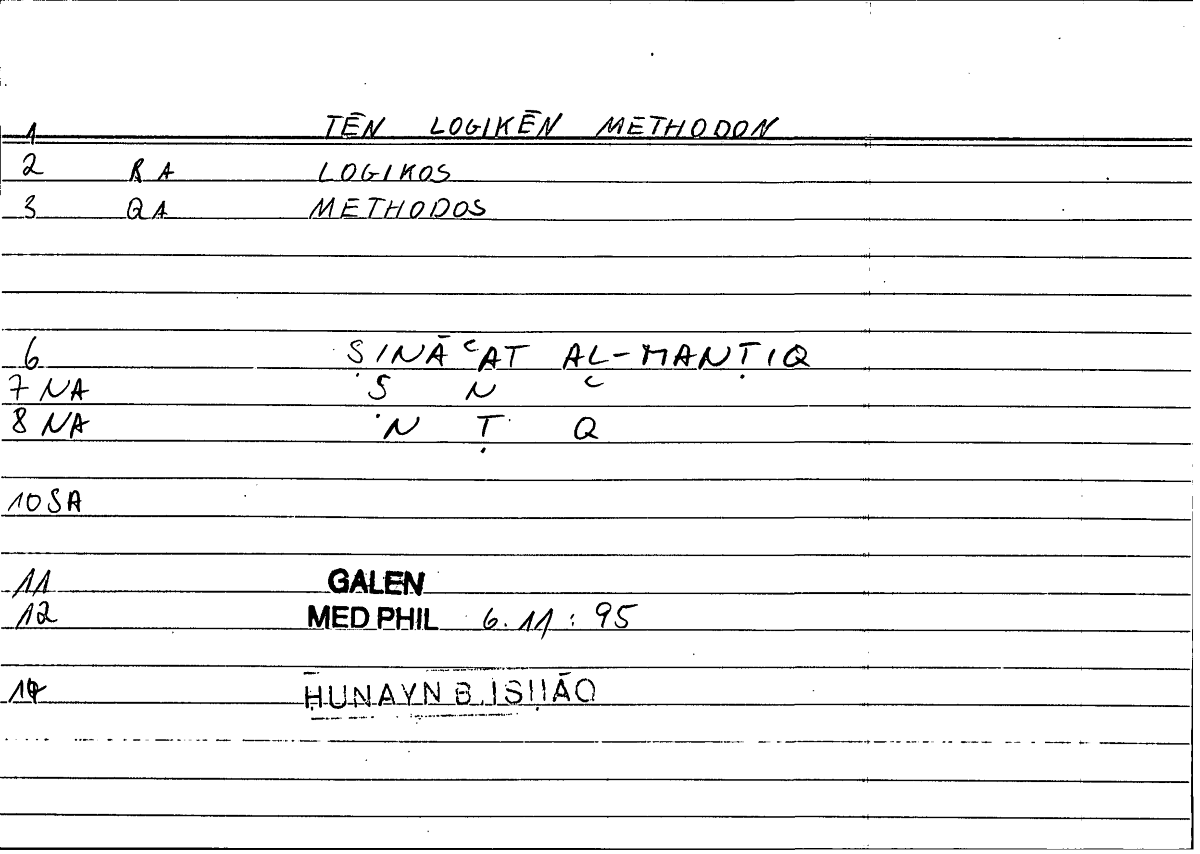 1 TĒN LOGIKĒN METHODON
2 RA LOGIKOS
3 QA METHODOS
6 ṢINĀʿAT AL-MANṬIQ
7 NA Ṣ N ʿ
8 NA N Ṭ Q
10 SA
11 GALEN
12 MED PHIL 6.11:95
14 ḤUNAYN B. ISḤĀQ